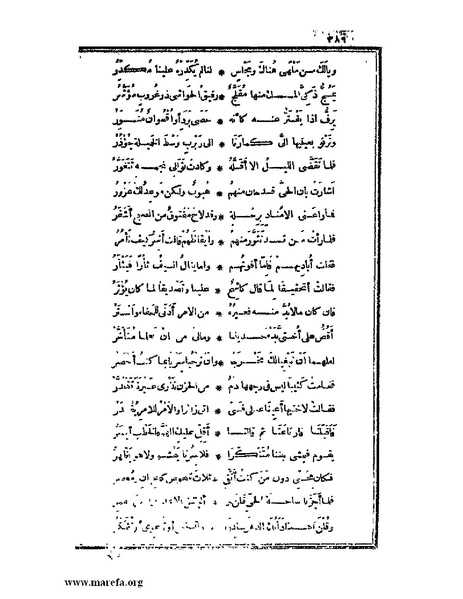 ٣٨٩
ويالك من ملهى هناك ومجلس * لنا لم يكدره علينا مكدر
يمج ذكي المسك منها مفلج * رقيق الحواشي ذو غروب مؤشر
يرف اذا يفتر عنه كأنه * حصى برد أو أقحوان منور
وترنو بعينيها الى كما رنا * الى ربرب وسط الخميلة جؤذر
فلما تقضى الليل الا أقله * وكادت توالي نجمه تتغور
أشارت بأن الحي قد حان منهم * هبوب ولكن موعد لك عزور
فما راعني الا مناد برحلة * وقد لاح مفتوق من الصبح أشقر
فلما رأت من قد تنور منهم * وأيقاظهم قالت أشر كيف تأمر
فقلت أباديهم فاما أفوتهم * واما ينال السيف ثأرا فيثأر
فقالت أتحقيقا لما قال كاشح * علينا وتصديقا لما كان يؤثر
فان كان مالا بد منه فغيره * من الامر أدنى للخفاء وأستر
أقص على أختي بدء حديثنا * ومالي من ان تعلما متأخر
لعلهما أن تبغيا لك مخرجا * وان ترحبا سربا بما كنت أحصر
فقامت كئيبا ليس في وجهها دم * من الحزن تذرى عبرة تتحدر
فقالت لاختيها أعينا على فتى * أتى زائرا والامر للامر يقدر
فأقبلتا فارتاعتا ثم قالتا * أقلي عليك الهم فالخطب أيسر
يقوم فيمشي بيننا متنكرا * فلا سرنا يفشو ولا هو يظهر
فكان مجني دون من كنت أتقي * ثلاث شخوص كاعبان ومعصر
فلما أجزنا ساحة الحي قلن لي *
وقلن أهذا دأبك الدهر سادرا *
www.marefa.org